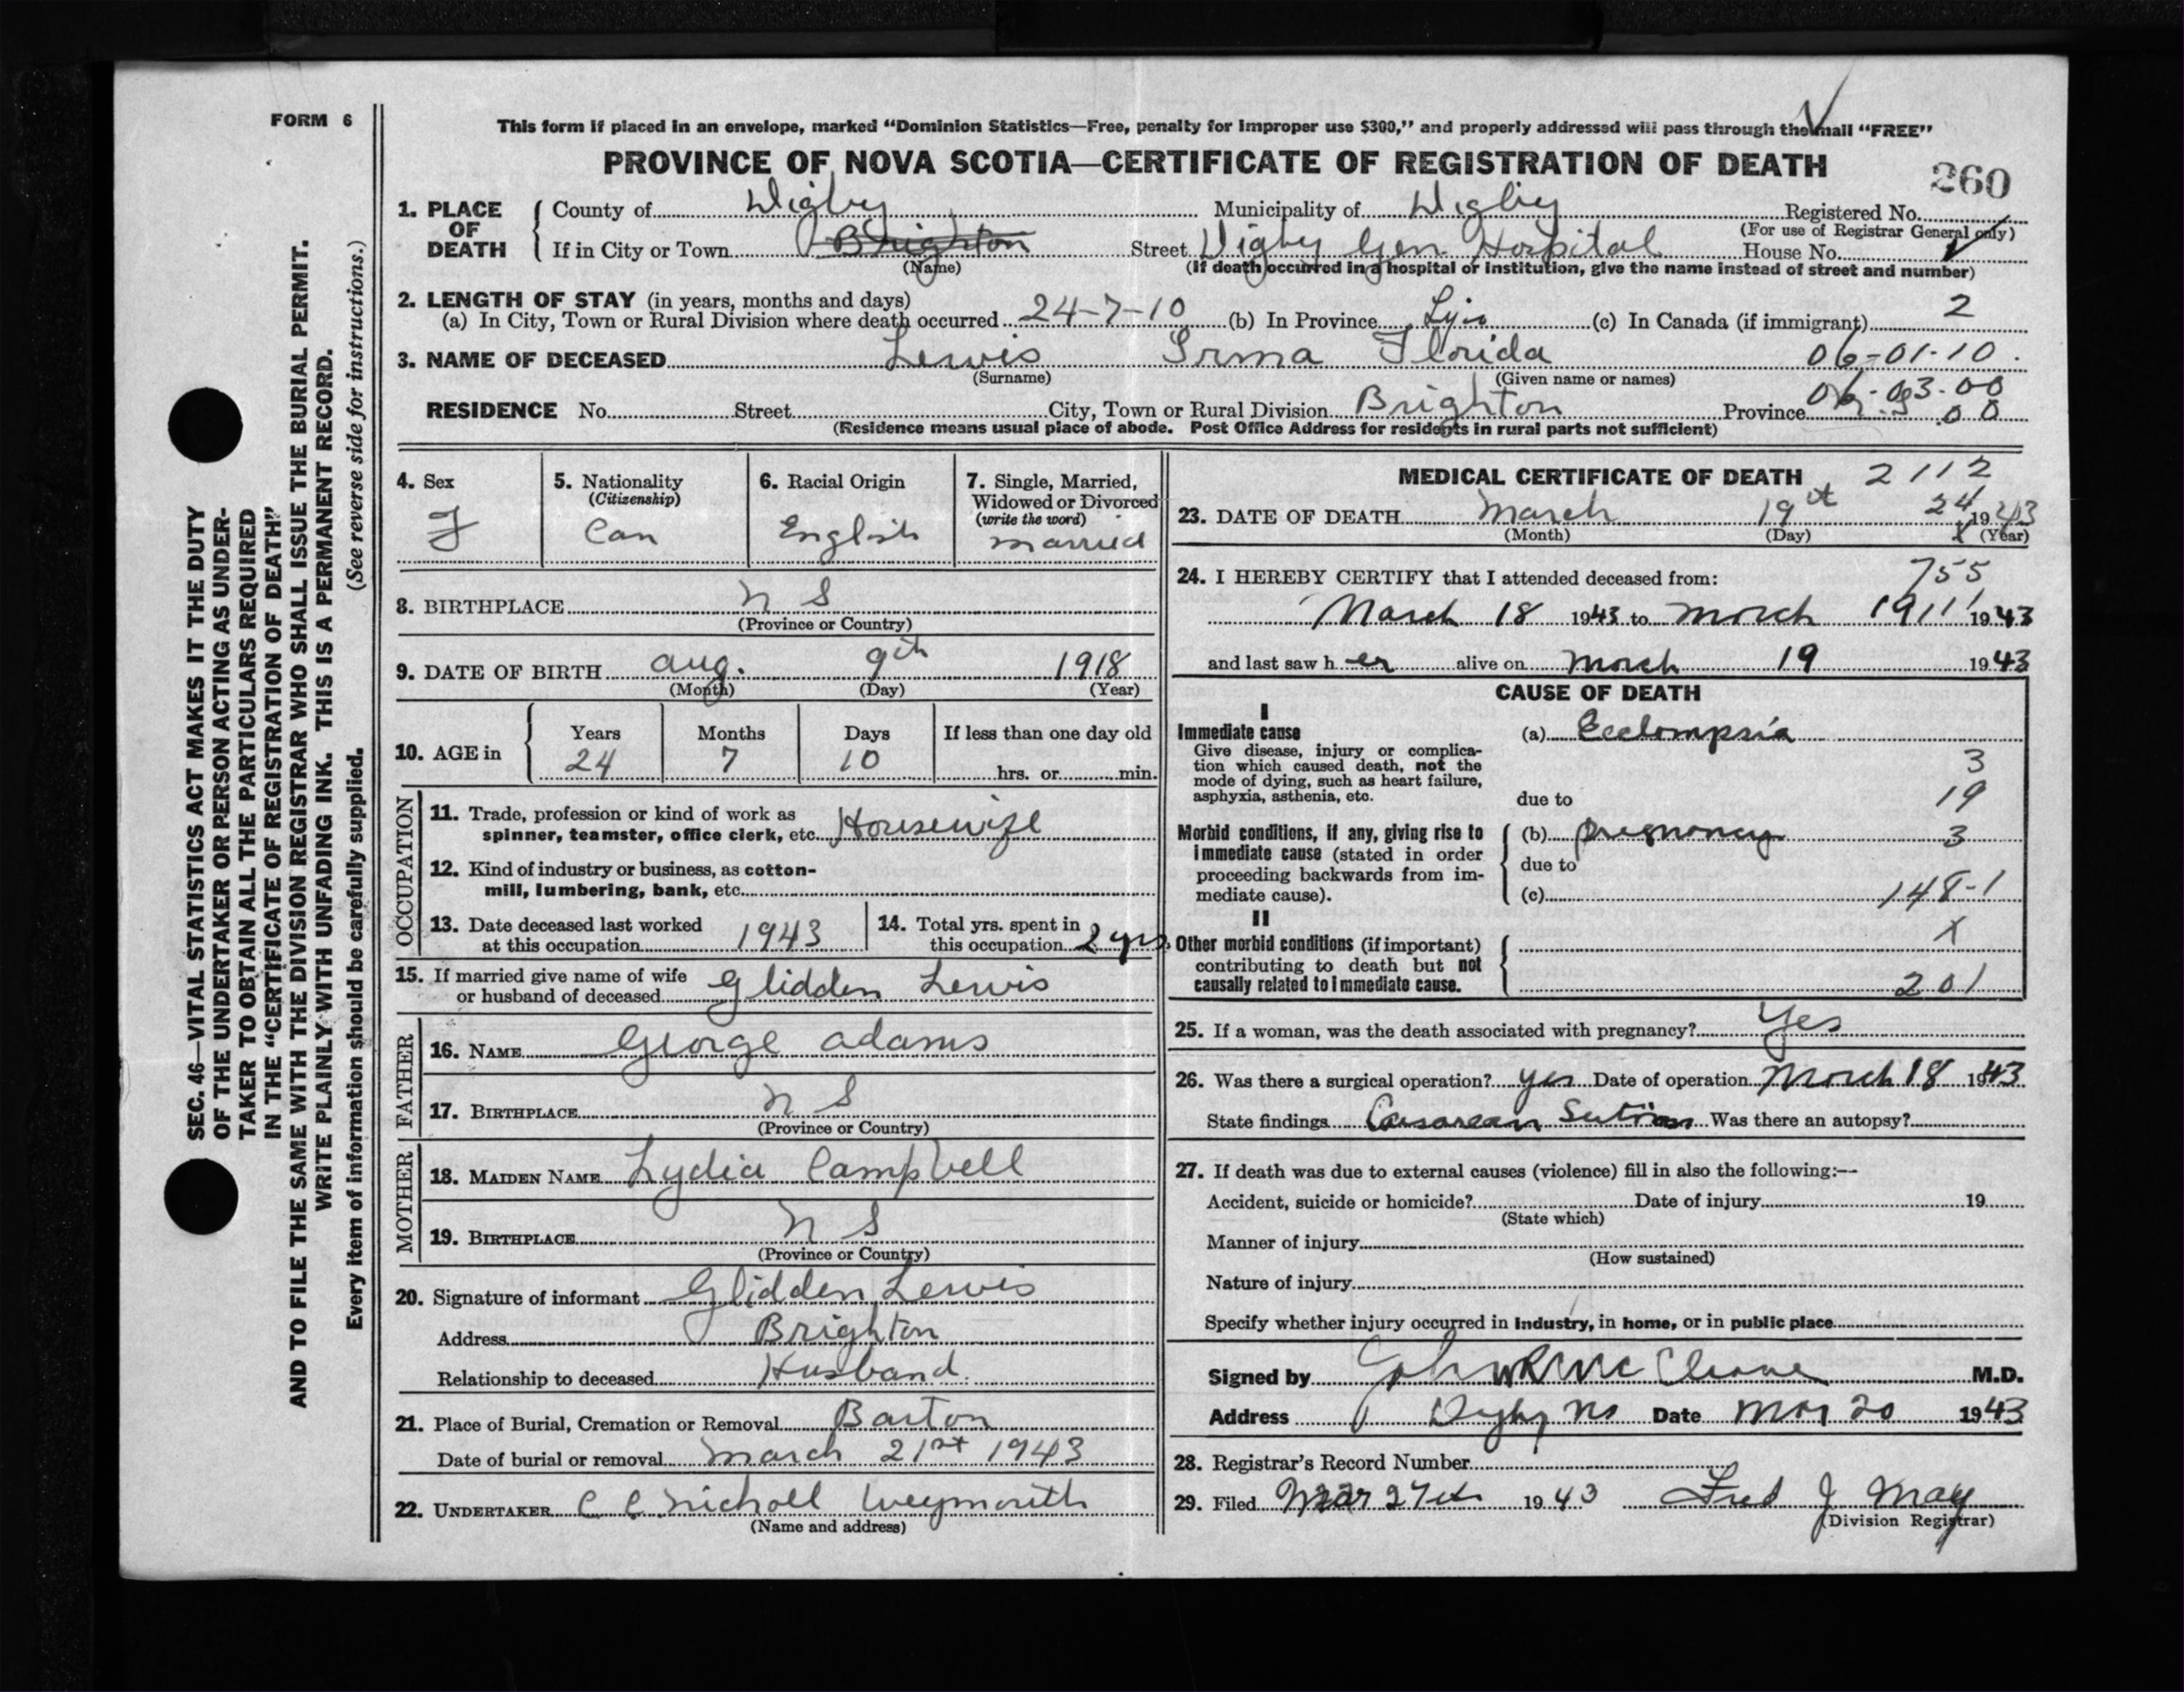 FORM 6
This form if placed in an envelope, marked “Dominion Statistics—Free, penalty for improper use $300,” and properly addressed will pass through the mail “FREE”
PROVINCE OF NOVA SCOTIA—CERTIFICATE OF REGISTRATION OF DEATH
260
1. PLACE OF DEATH
County of Digby Municipality of Digby Registered No.
(For use of Registrar General only)
If in City or Town Brighton Street Digby Gen Hospital House No.
(Name) (If death occurred in a hospital or institution, give the name instead of street and number)
2. LENGTH OF STAY (in years, months and days)
(a) In City, Town or Rural Division where death occurred 24-7-10 (b) In Province Life (c) In Canada (if immigrant) 2
3. NAME OF DECEASED Lewis Irma Florida 06-01-10.
(Surname) (Given name or names)
06-03-00
RESIDENCE No. Street City, Town or Rural Division Brighton Province N.S 00
(Residence means usual place of abode. Post Office Address for residents in rural parts not sufficient)
4. Sex
F
5. Nationality
(Citizenship)
Can
6. Racial Origin
English
7. Single, Married,
Widowed or Divorced
(write the word)
married
8. BIRTHPLACE N S
(Province or Country)
9. DATE OF BIRTH Aug. 9th 1918
(Month) (Day) (Year)
10. AGE in
Years Months Days If less than one day old
24 7 10 hrs. or min.
OCCUPATION
11. Trade, profession or kind of work as
spinner, teamster, office clerk, etc. Housewife
12. Kind of industry or business, as cotton-
mill, lumbering, bank, etc.
13. Date deceased last worked
at this occupation 1943
14. Total yrs. spent in
this occupation 2 yrs.
15. If married give name of wife
or husband of deceased Glidden Lewis
FATHER
16. NAME George Adams
17. BIRTHPLACE N S
(Province or Country)
MOTHER
18. MAIDEN NAME Lydia Campbell
19. BIRTHPLACE N S
(Province or Country)
20. Signature of informant Glidden Lewis
Address Brighton
Relationship to deceased Husband.
21. Place of Burial, Cremation or Removal Barton
Date of burial or removal March 21st 1943
22. UNDERTAKER C C Nicholl Weymouth
(Name and address)
MEDICAL CERTIFICATE OF DEATH 2112
23. DATE OF DEATH March 19th 24 1943
(Month) (Day) X (Year)
24. I HEREBY CERTIFY that I attended deceased from: 755
March 18 1943 to March 19 1943
and last saw h er alive on March 19 1943
CAUSE OF DEATH
I
Immediate cause (a) Ecclampsia
Give disease, injury or complica-
tion which caused death, not the
mode of dying, such as heart failure,
asphyxia, asthenia, etc. due to
3
19
Morbid conditions, if any, giving rise to
immediate cause (stated in order
proceeding backwards from im-
mediate cause).
(b) pregnancy 3
due to
(c) 148-1
II
Other morbid conditions (if important)
contributing to death but not
causally related to immediate cause.
X
201
25. If a woman, was the death associated with pregnancy? Yes
26. Was there a surgical operation? yes Date of operation March 18 1943
State findings Caesarean Section Was there an autopsy?
27. If death was due to external causes (violence) fill in also the following:—
Accident, suicide or homicide? Date of injury 19
(State which)
Manner of injury
(How sustained)
Nature of injury
Specify whether injury occurred in industry, in home, or in public place
Signed by M.D.
Address Digby NS Date Mar 20 1943
28. Registrar's Record Number
29. Filed Mar 27th 1943 Fred J May
(Division Registrar)
SEC. 46—VITAL STATISTICS ACT MAKES IT THE DUTY
OF THE UNDERTAKER OR PERSON ACTING AS UNDER-
TAKER TO OBTAIN ALL THE PARTICULARS REQUIRED
IN THE “CERTIFICATE OF REGISTRATION OF DEATH”
AND TO FILE THE SAME WITH THE DIVISION REGISTRAR WHO SHALL ISSUE THE BURIAL PERMIT.
WRITE PLAINLY WITH UNFADING INK. THIS IS A PERMANENT RECORD.
Every item of information should be carefully supplied. (See reverse side for instructions.)